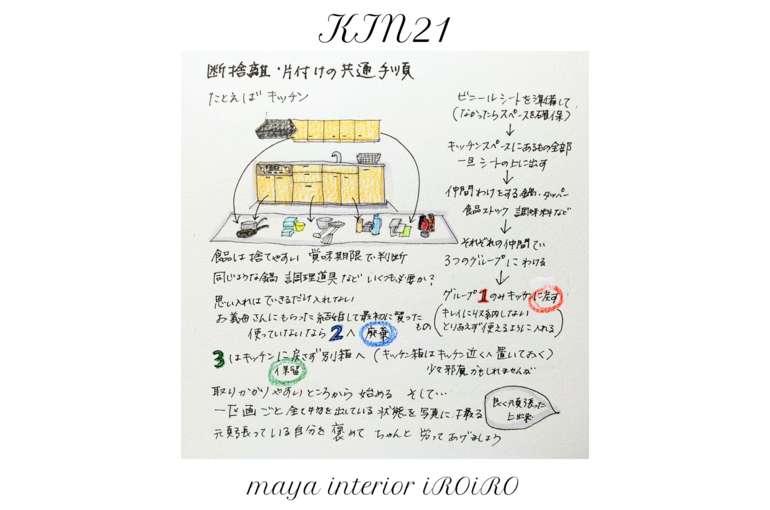 KIN21
断捨離・片付けの共通手順
たとえば キッチン
ビニールシートを準備して
(なかったらスペースを確保)
↓
キッチンスペースにあるもの全部
一旦 シートの上に出す
↓
仲間わけをする 鍋・タッパー
食品ストック 調味料など
↓
それぞれの仲間で
3つのグループにわける
↓
グループ1のみキッチンに戻す
(キレイに収納しない
とりあえず使えるように入れる)
食品は捨てやすい 賞味期限で判断
同じような鍋 調理道具など いくつも必要か?
思い入れはできるだけ入れない
お義母さんにもらった 結婚して最初に買った もの
使っていないなら2へ 廃棄
3はキッチンに戻さず別箱へ (キッチン箱はキッチン近くへ置いておく)
保留
少々邪魔かもしれませんが
取りかかりやすいところから 始める そして…
一区画ごと全て中物を出している 状態を写真に撮る
良く頑張った
上出来
元気張っている自分を 褒めて ちゃんと 労ってあげましょう
maya interior iROiRO